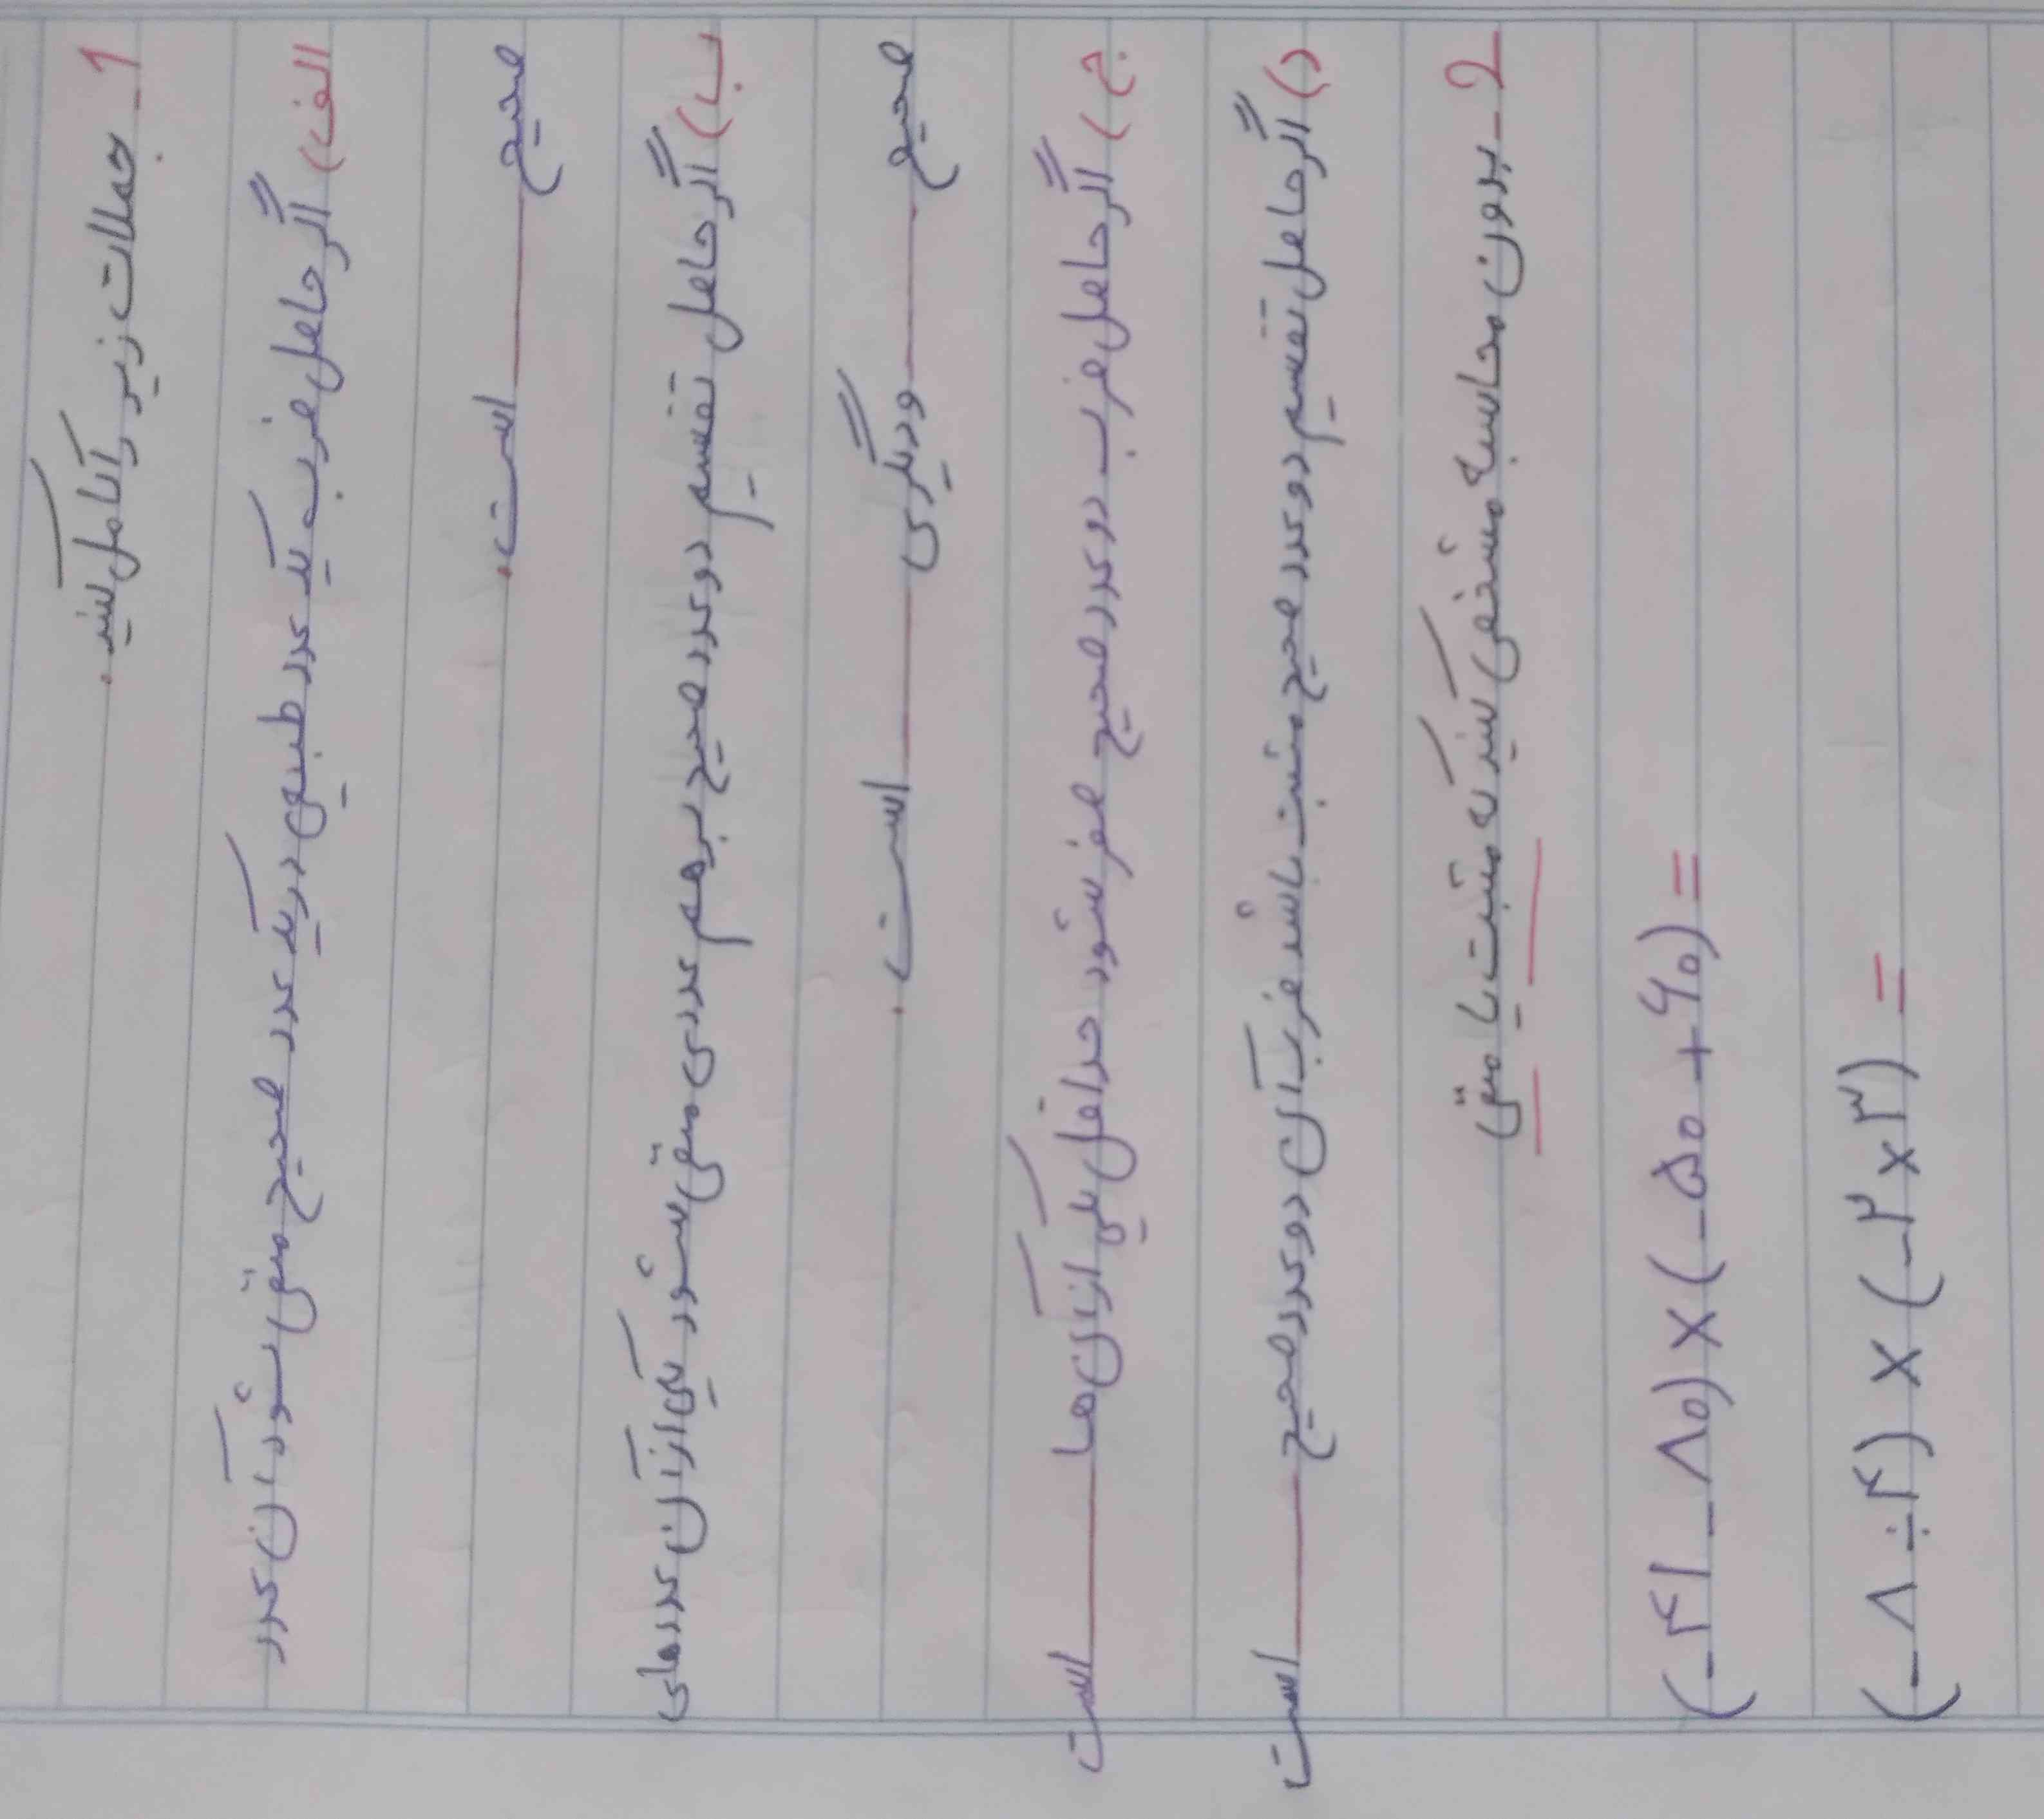 1_ جملات زیر را کامل کنید.
الف) اگر حاصل ضرب یک عدد طبیعی در یک عدد صحیح منفی شود آن عدد
صحیح ____ است.
ب) اگر حاصل تقسیم دو عدد صحیح بر هم عددی منفی شود یکی از آن عددهای
صحیح ____ و دیگری ____ است.
ج) اگر حاصل ضرب دو عدد صحیح صفر شود حداقل یکی از آن ها ____ است
د) اگر حاصل تقسیم دو عدد صحیح مثبت باشد ضرب آن دو عدد صحیح ____ است
2_ بدون محاسبه مشخص کنید که مثبت یا منفی
(-۴۱ - ۸۰) × (-۵۰ + ۶۰) =
(-۸ ÷ ۴) × (-۲ × ۳) =